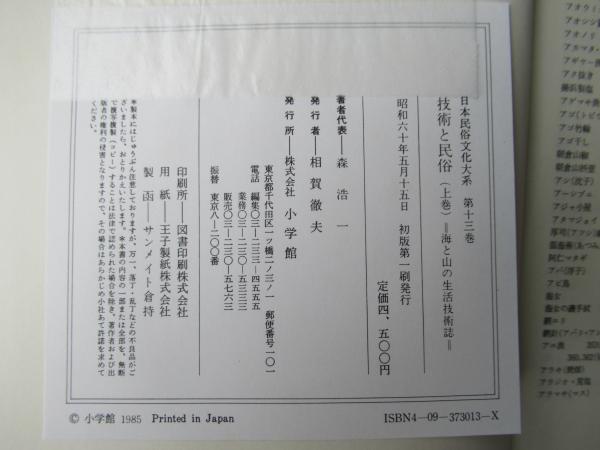 日本民俗文化大系 第十三巻
技術と民俗（上巻）＝海と山の生活技術誌＝
定価四、五〇〇円
昭和六十年五月十五日 初版第一刷発行
著者代表──森 浩一
発行者──相賀徹夫
発行所──株式会社 小学館
東京都千代田区一ツ橋二ノ三ノ一 郵便番号一〇一
電話 編集〇三―二三三―四五五五
業務〇三―二三〇―五三三三
販売〇三―二三〇―五七六三
振替 東京八―二〇〇番
印刷所──図書印刷株式会社
用紙──王子製紙株式会社
製函──サンメイト倉持
＊製本にはじゅうぶん注意しておりますが、万一、落丁・乱丁などの不良品がございましたら、おとりかえいたします。＊本書の内容の一部または全部を、無断で複写複製（コピー）することは法律で認められた場合を除き、著作者および出版者の権利の侵害となりますので、その場合はあらかじめ小社あて許諾を求めてください。
© 小学館 1985 Printed in Japan
ISBN4―09―373013―X
アオノリ
アク抜き
アゴ竹輪
アゴ干し
朝倉山椒
アジャ小屋
アバ（浮子）
アビ島
海女
アラマサ（マス）